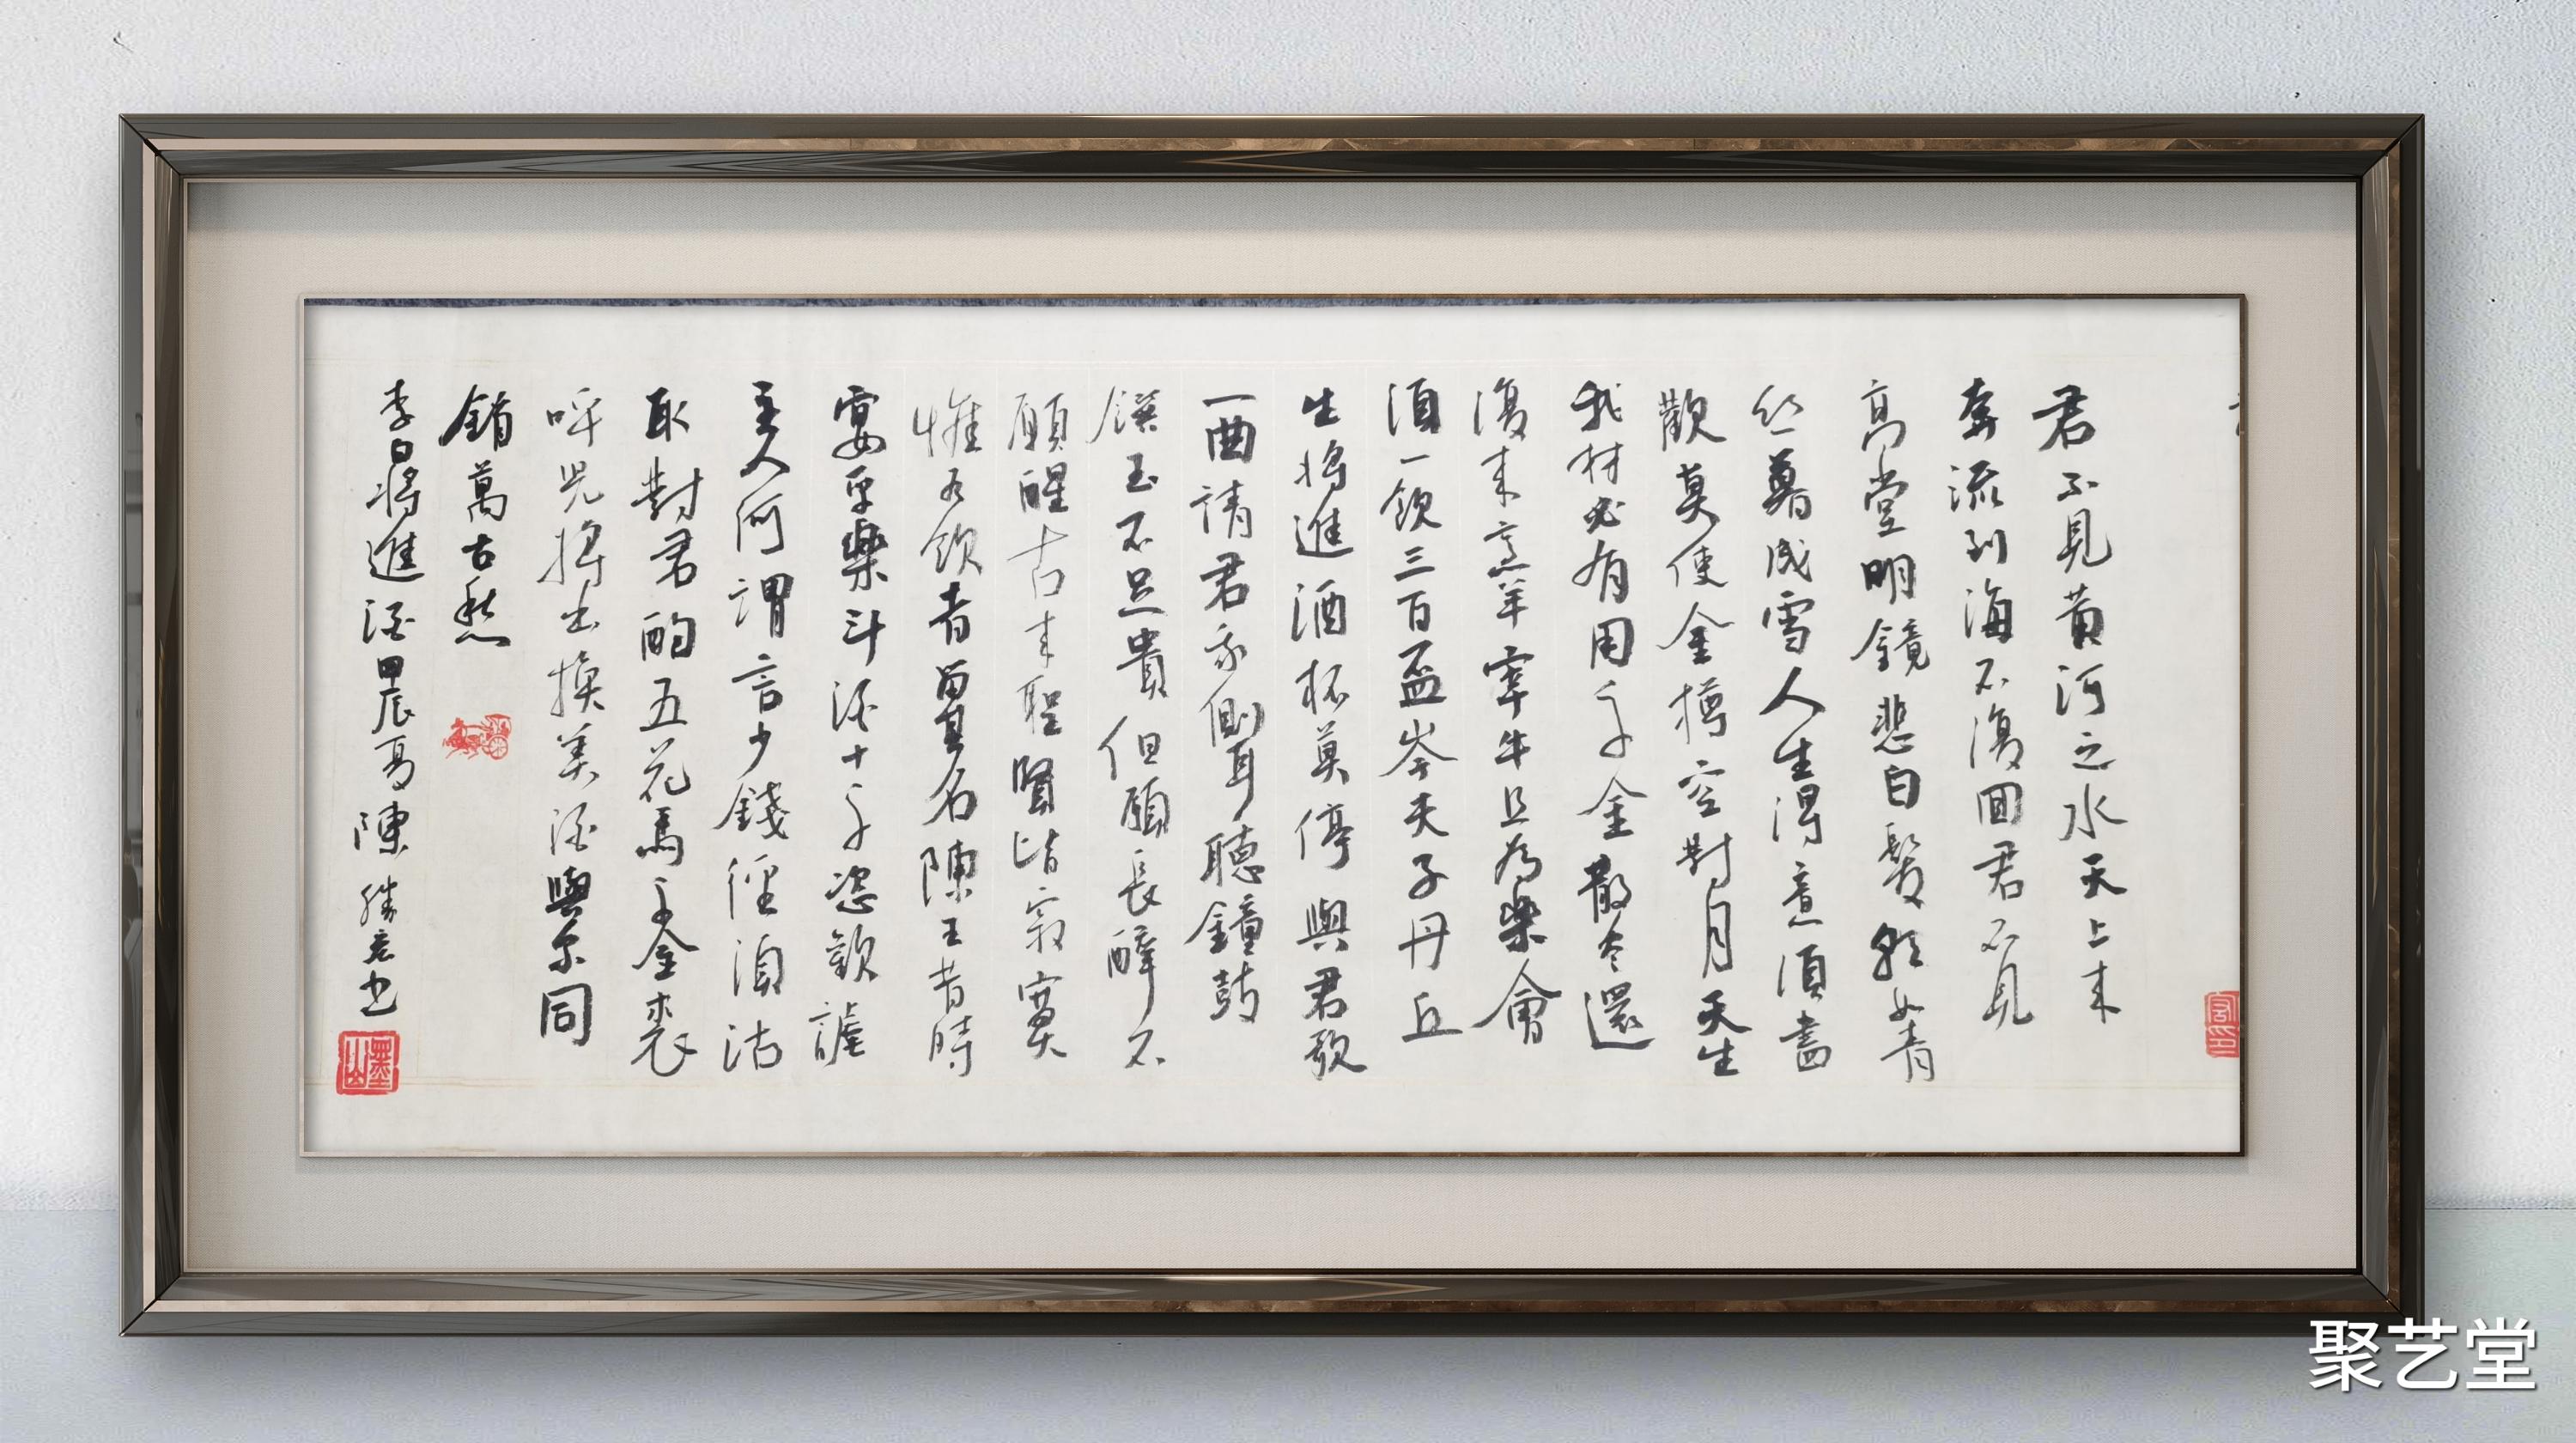 君不見黃河之水天上来
奔流到海不復回君不見
高堂明鏡悲白髮朝如青
丝暮成雪人生得意須盡
歡莫使金樽空對月天生
我材必有用千金散尽還
復来烹羊宰牛且為樂會
須一飲三百盃岑夫子丹丘
生將進酒杯莫停與君歌
一曲請君我側耳聽鐘鼓
饌玉不足貴但願長醉不
願醒古来聖賢皆寂寞
惟有飲者留其名陳王昔時
宴平樂斗酒十千恣歡謔
主人何謂言少錢徑須沽
取對君酌五花馬千金裘
呼兒將出換美酒與尔同
銷萬古愁
李白將進酒甲辰夏陳勝书
墨山
聚艺堂